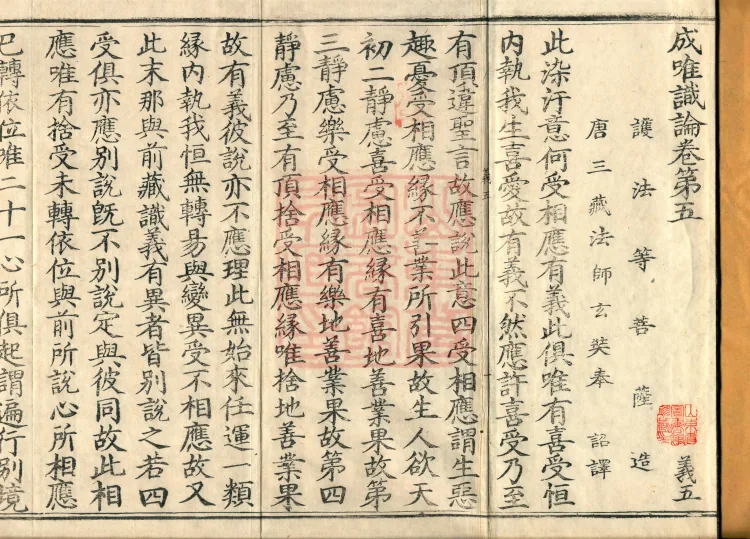 成唯識論卷第五　義五
護法等菩薩造
唐三藏法師玄奘奉　詔譯
此染汙意何受相應有義此俱唯有喜受恒
內執我生喜愛故有義不然應許喜受乃至
有頂違聖言故應說此意四受相應謂生惡
趣憂受相應緣不善業所引果故生人欲天
初二靜慮喜受相應緣有喜地善業果故第
三靜慮樂受相應緣有樂地善業果故第四
靜慮乃至有頂捨受相應緣唯捨地善業果
故有義彼說亦不應理此無始來任運一類
緣內執我恒無轉易與變異受不相應故又
此末那與前藏識義有異者皆別說之若四
受俱亦應別說既不別說定與彼同故此相
應唯有捨受未轉依位與前所說心所相應
已轉依位唯二十一心所俱起謂遍行別境
義五